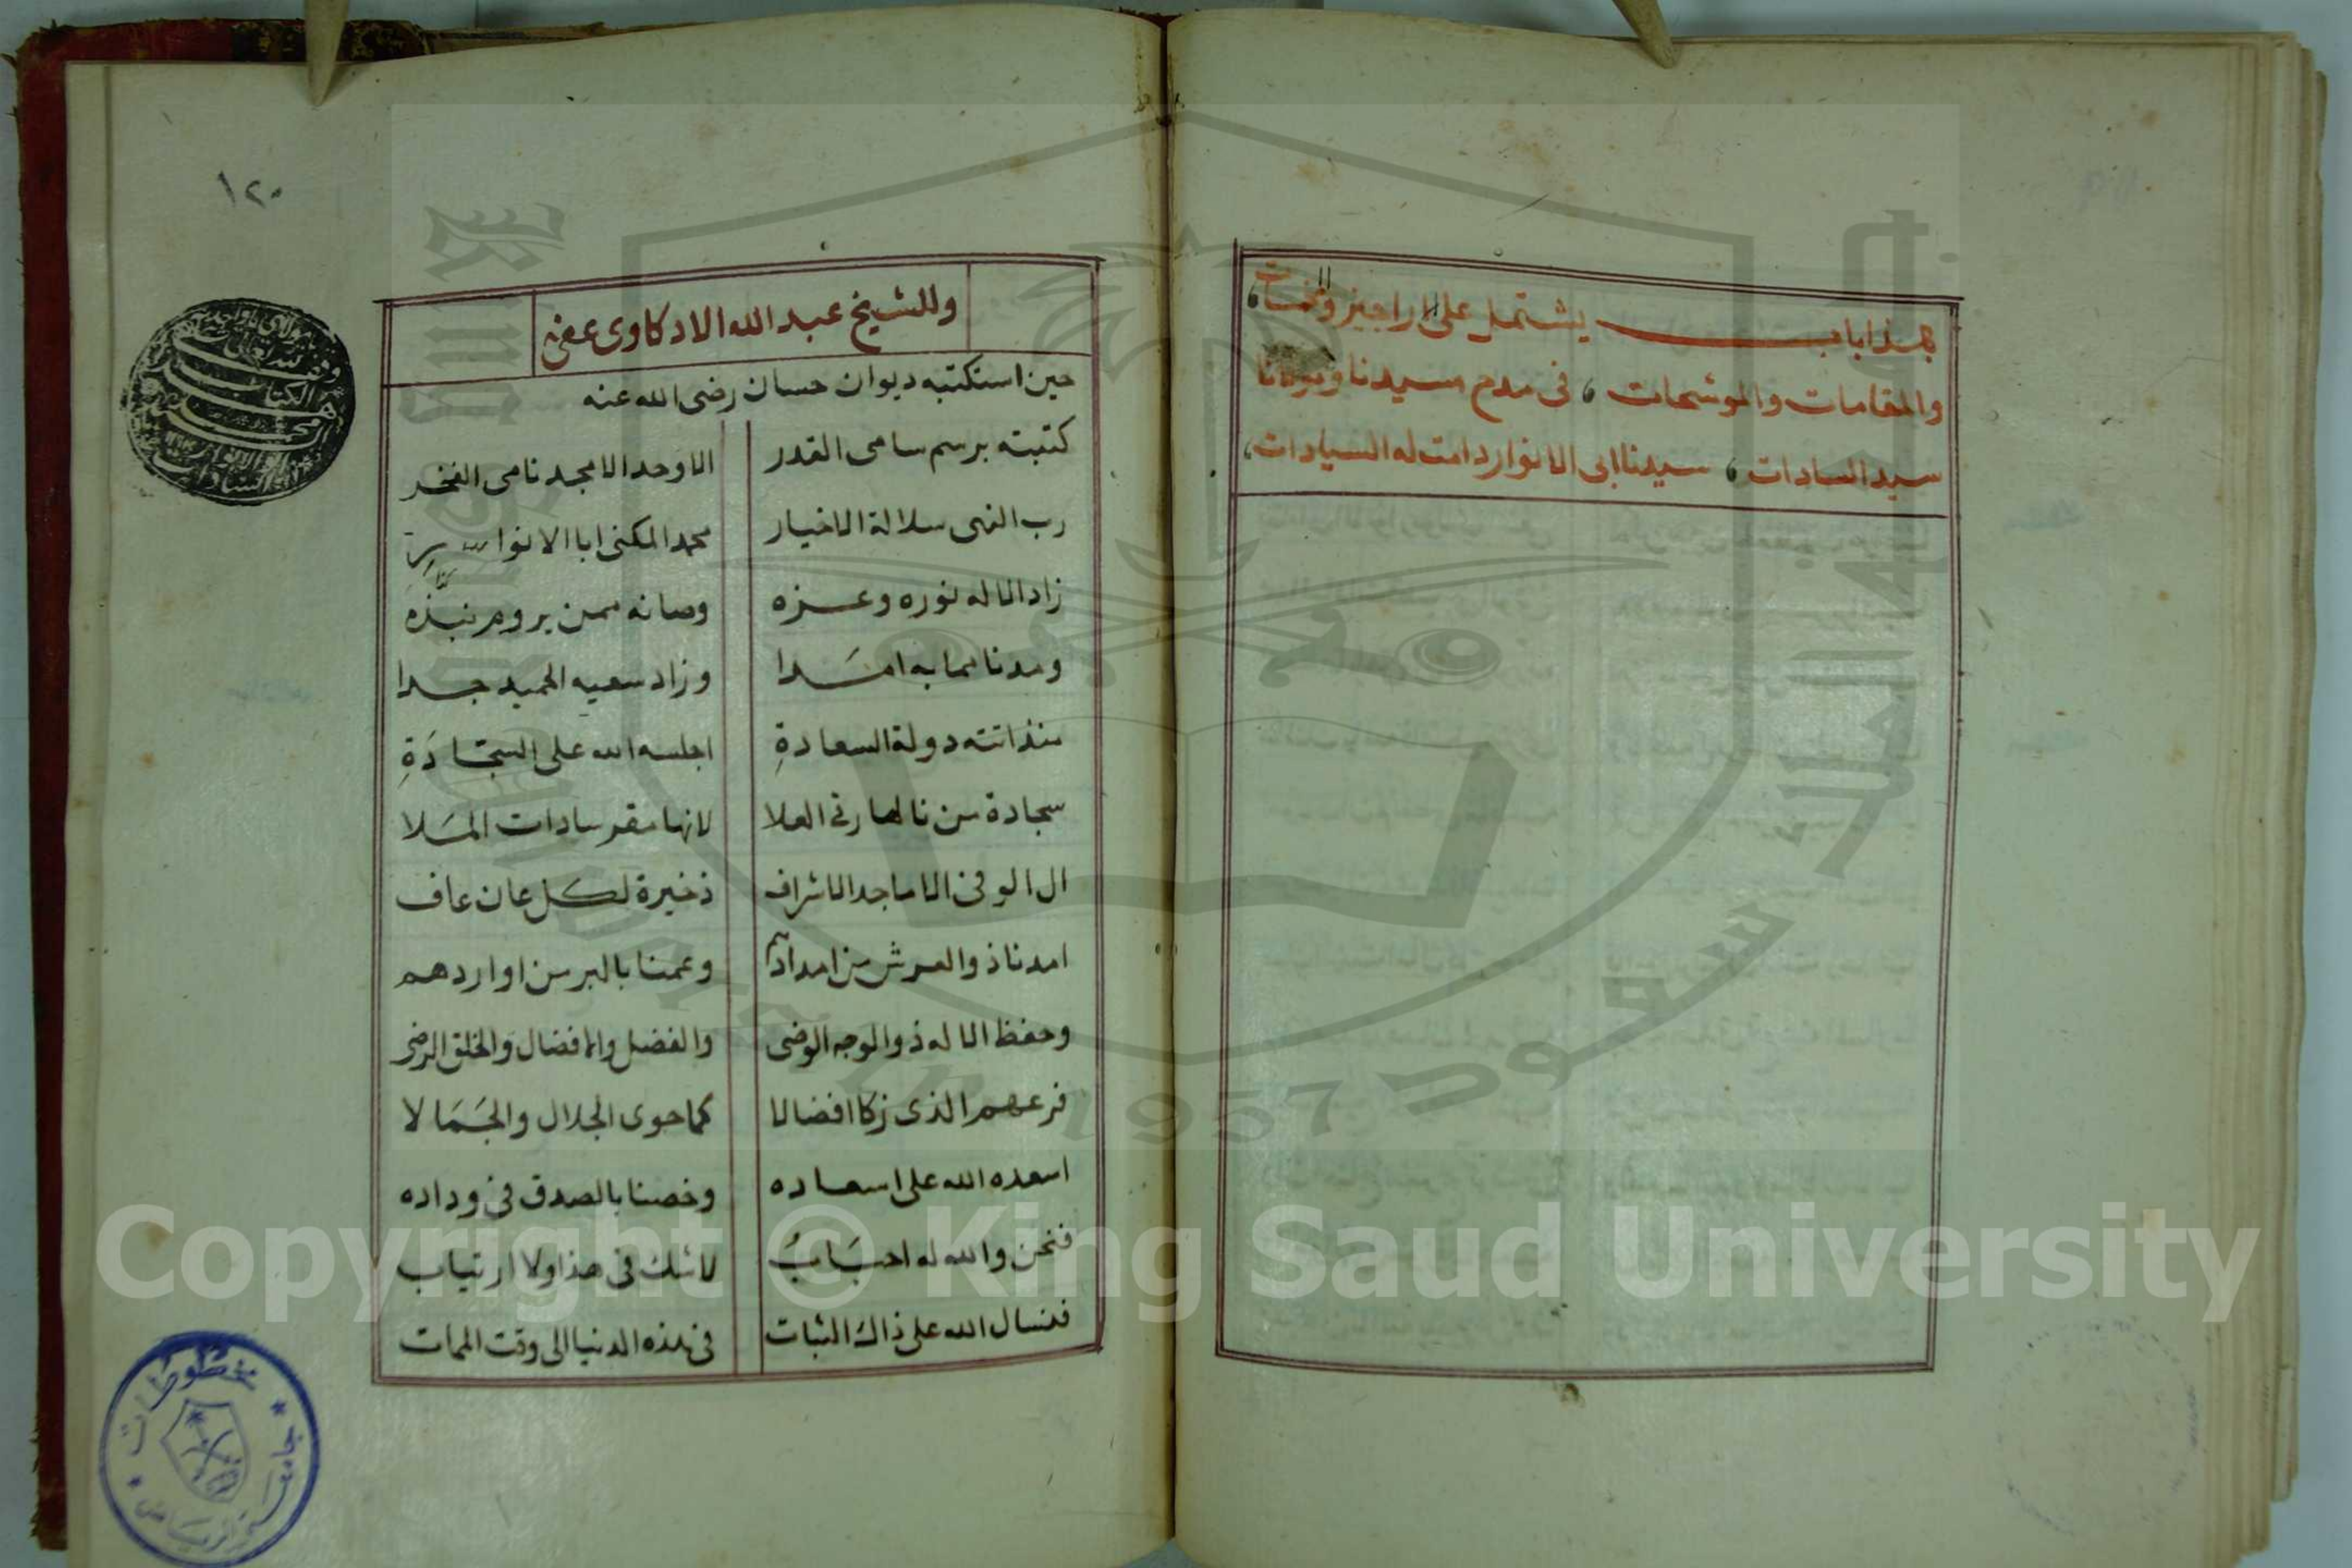 هذا باب يشتمل على الاراجيز والمخمسات
والمقامات والموشحات ، فى مدح سيدنا ومولانا
سيد السادات ، سيدنا ابى الانوار دامت له السيادات ،
١٢٠
وللشيخ عبد الله الادكاوى عفى عنه
حين استكتبه ديوان حسان رضى الله عنه
كتبته برسم سامى القدر الاوحد الامجد نامى الفخر
رب النهى سلالة الاخيار محمد المكنى ابا الانوار
زاد الاله نوره وعزه وصانه ممن يروم نبذه
ومدنا بما به امدا وزاد سعيه الحميد جدا
منذ اتته دولة السعادةِ اجلسه الله على السجادَةِ
سجادة من نالها رقى العلا لانها مقر سادات المَلا
ال الوفى الاماجد الاشراف ذخيرة لكل عان عاف
امدنا ذو العرش من امدادهم وعمنا بالبر من اوارد هم
وحفظ الاله ذو الوجه الوضى والفضل والافضال والخلق الرضى
فرعهم الذى زكا افضالا كما حوى الجلال والجَمَالا
اسعده الله على اسعاده وخصنا بالصدق فى وداده
فنحن والله له احبَابُ لاشك فى هذا ولا ارتياب
فنسال الله على ذاك الثبات فى هذه الدنيا الى وقت الممات
مخطوطات
جامعة الرياض
1957
Copyright © King Saud University